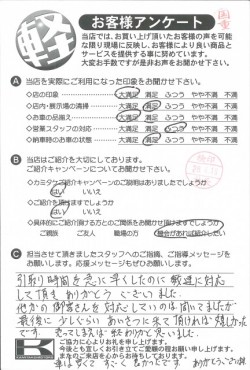 軽
お客様アンケート
当店では、お買い上げ頂いたお客様の声を可能
な限り現場に反映し、お客様により良い商品と
サービスを提供する事に努めています。
大変お手数ですが是非お声をお聞かせ下さい。
A 当店を実際にご利用になった印象をお聞かせ下さい。
◇店の印象 大満足 満足 ふつう やや不満 不満
◇店内・展示場の清掃 大満足 満足 ふつう やや不満 不満
◇お車の品揃え 大満足 満足 ふつう やや不満 不満
◇営業スタッフの対応 大満足 満足 ふつう やや不満 不満
◇納車時のお車の状態 大満足 満足 ふつう やや不満 不満
B 当店はご紹介を大切にしております。
ご紹介キャンペーンについてお聞かせ下さい。
◇カミタケご紹介キャンペーンのご説明はありましたでしょうか
はい いいえ
◇ご紹介を頂けますでしょうか
はい いいえ
◇具体的にご紹介頂ける方とのご関係をお聞かせ頂けますでしょうか
ご親族 ご友人 職場の方 機会があれば紹介したい
C 担当させて頂きましたスタッフへのご指摘、ご指導メッセージを
お願いします。応援メッセージもぜひお願いします。
引取り時間を急に早くしたのに 敏速に対応
して頂き ありがとう ございました。
他かの御客さんを対応しているのは聞いてましたが
最後に 少しぐらい あいさつに来て頂ければ 嬉しかった
です。
ご協力に心よりお礼を申し上げます。
今後とも宜しくお引き立てご愛顧の程お願い申し上げます。
またのご来店を心からお待ちしております。
K
車は安くて すごく良かったです